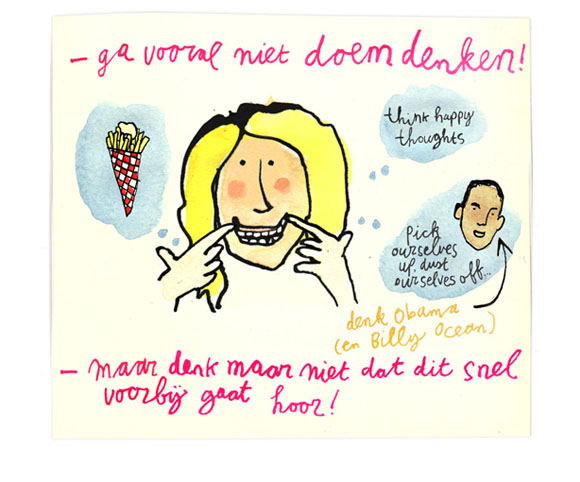 - ga vooral niet doemdenken!
think happy
thoughts
Pick
ourselves
up, dust
ourselves off...
denk Obama
(en Billy Ocean)
- maar denk maar niet dat dit snel
voorbij gaat hoor!